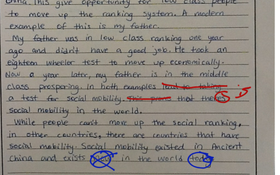 China. This give opportunity for low class people
to move up the ranking system. A modern
example of this is my father.
My father was in low class ranking one year
ago and didn't have a good job. He took an
eighteen wheeler test to move up economically.
Now a year later, my father is in the middle
class prospering. In both examples lead to taking
a test for social mobility. This prove that there
social mobility in the world.
While people can't move up the social ranking,
in other countries, there are countries that have
social mobility. Social mobility existed in Ancient
China and exists in the world today